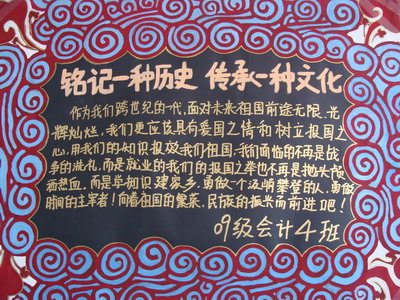 铭记一种历史 传承一种文化
作为我们跨世纪的一代,面对未来祖国前途无限、光
辉灿烂,我们更应该具向爱国之情和树立报国之
心,用我们的知识报效我们祖国,我们面临的不再是战
争的洗礼,而是就业的我们的报国之举也不再是抛头颅
洒热血,而是草知识建家乡,勇做一个攀登的人,勇做
时间的主宰者!向着祖国的繁荣、民族的振兴而前进吧!
09级会计4班